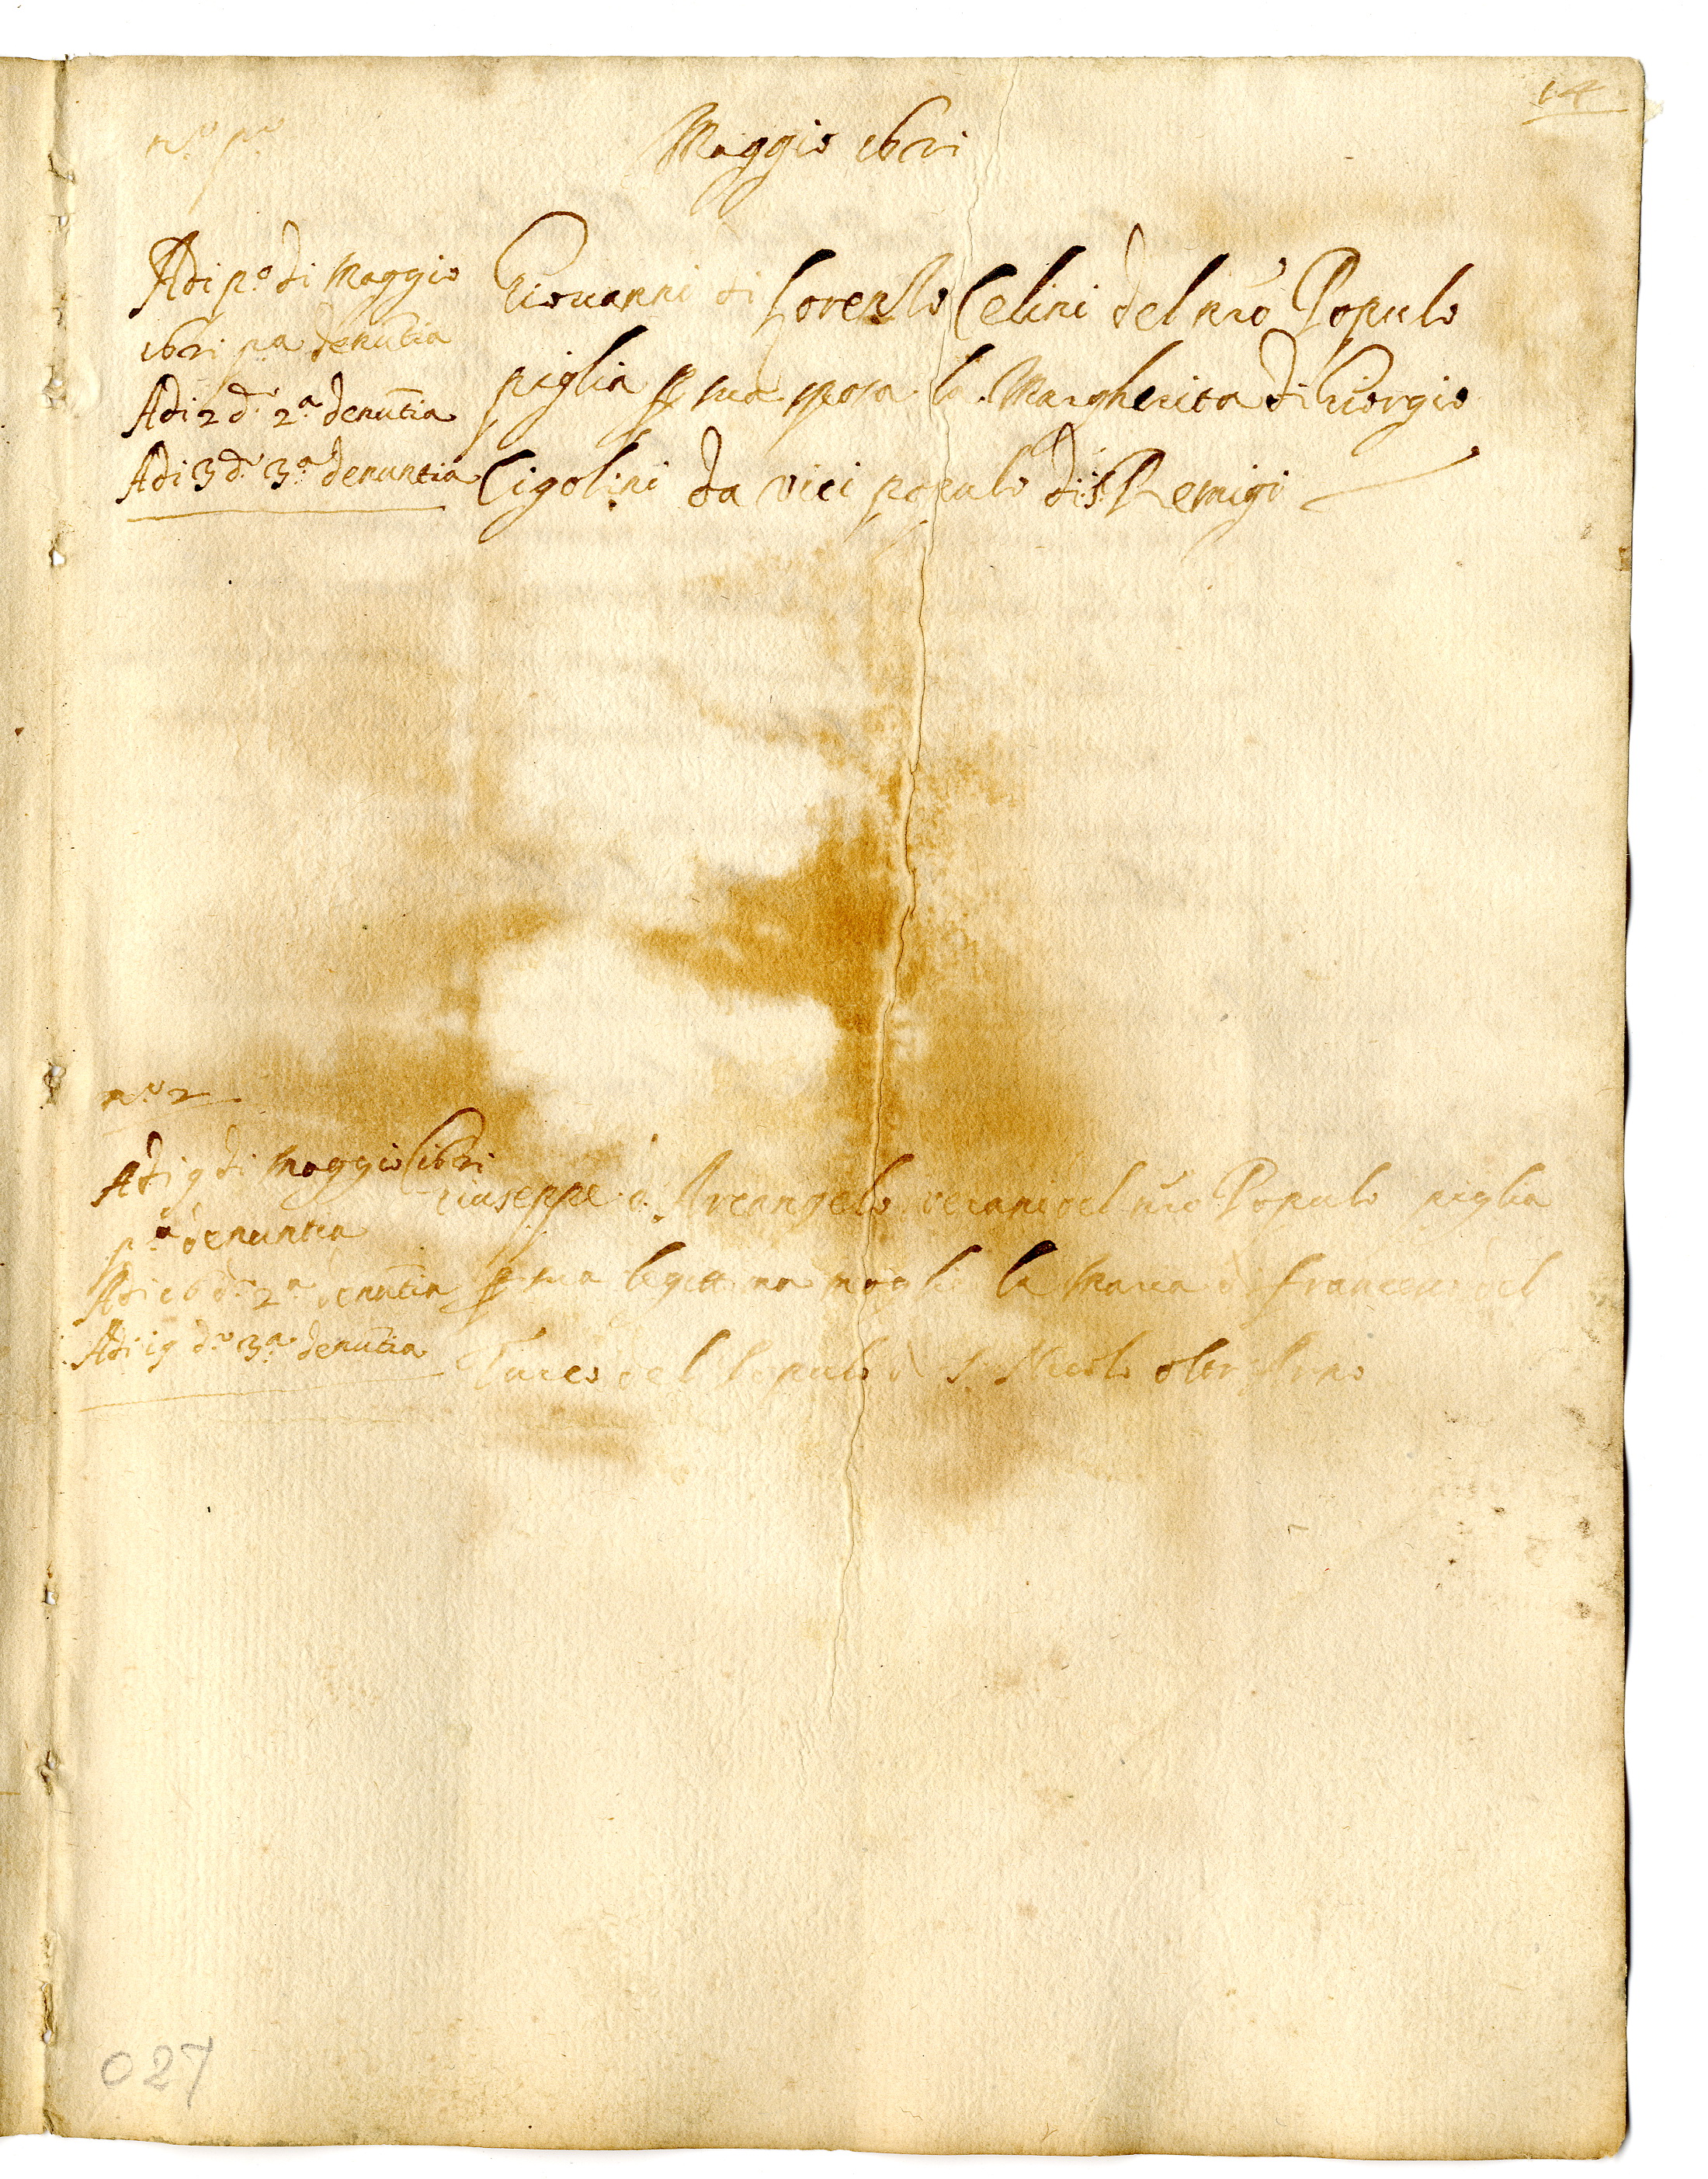 14
n.º p.º
Maggio 1621
Adi p.º di Maggio
1621 p.a denũtia
Adi 2 d.º 2.a denũtia
Adi 3 d.º 3.a denuntia
Giouanni di Lorenzo Celini del nrõ Populo
piglia p sua sposa la Margherita di Giorgio
Cigolini da vici populo di S. Remigi
n.º 2
Adi 9 di Maggio 1621
p.a denuntia
Adi 16 d.º 2.a denũtia
Adi 19 d.º 3.a denũtia
Giuseppe d'Arcangelo del nrõ Populo piglia
p sua legittima moglie la Maria di Francesco del
del Populo di S. Nicolo
027